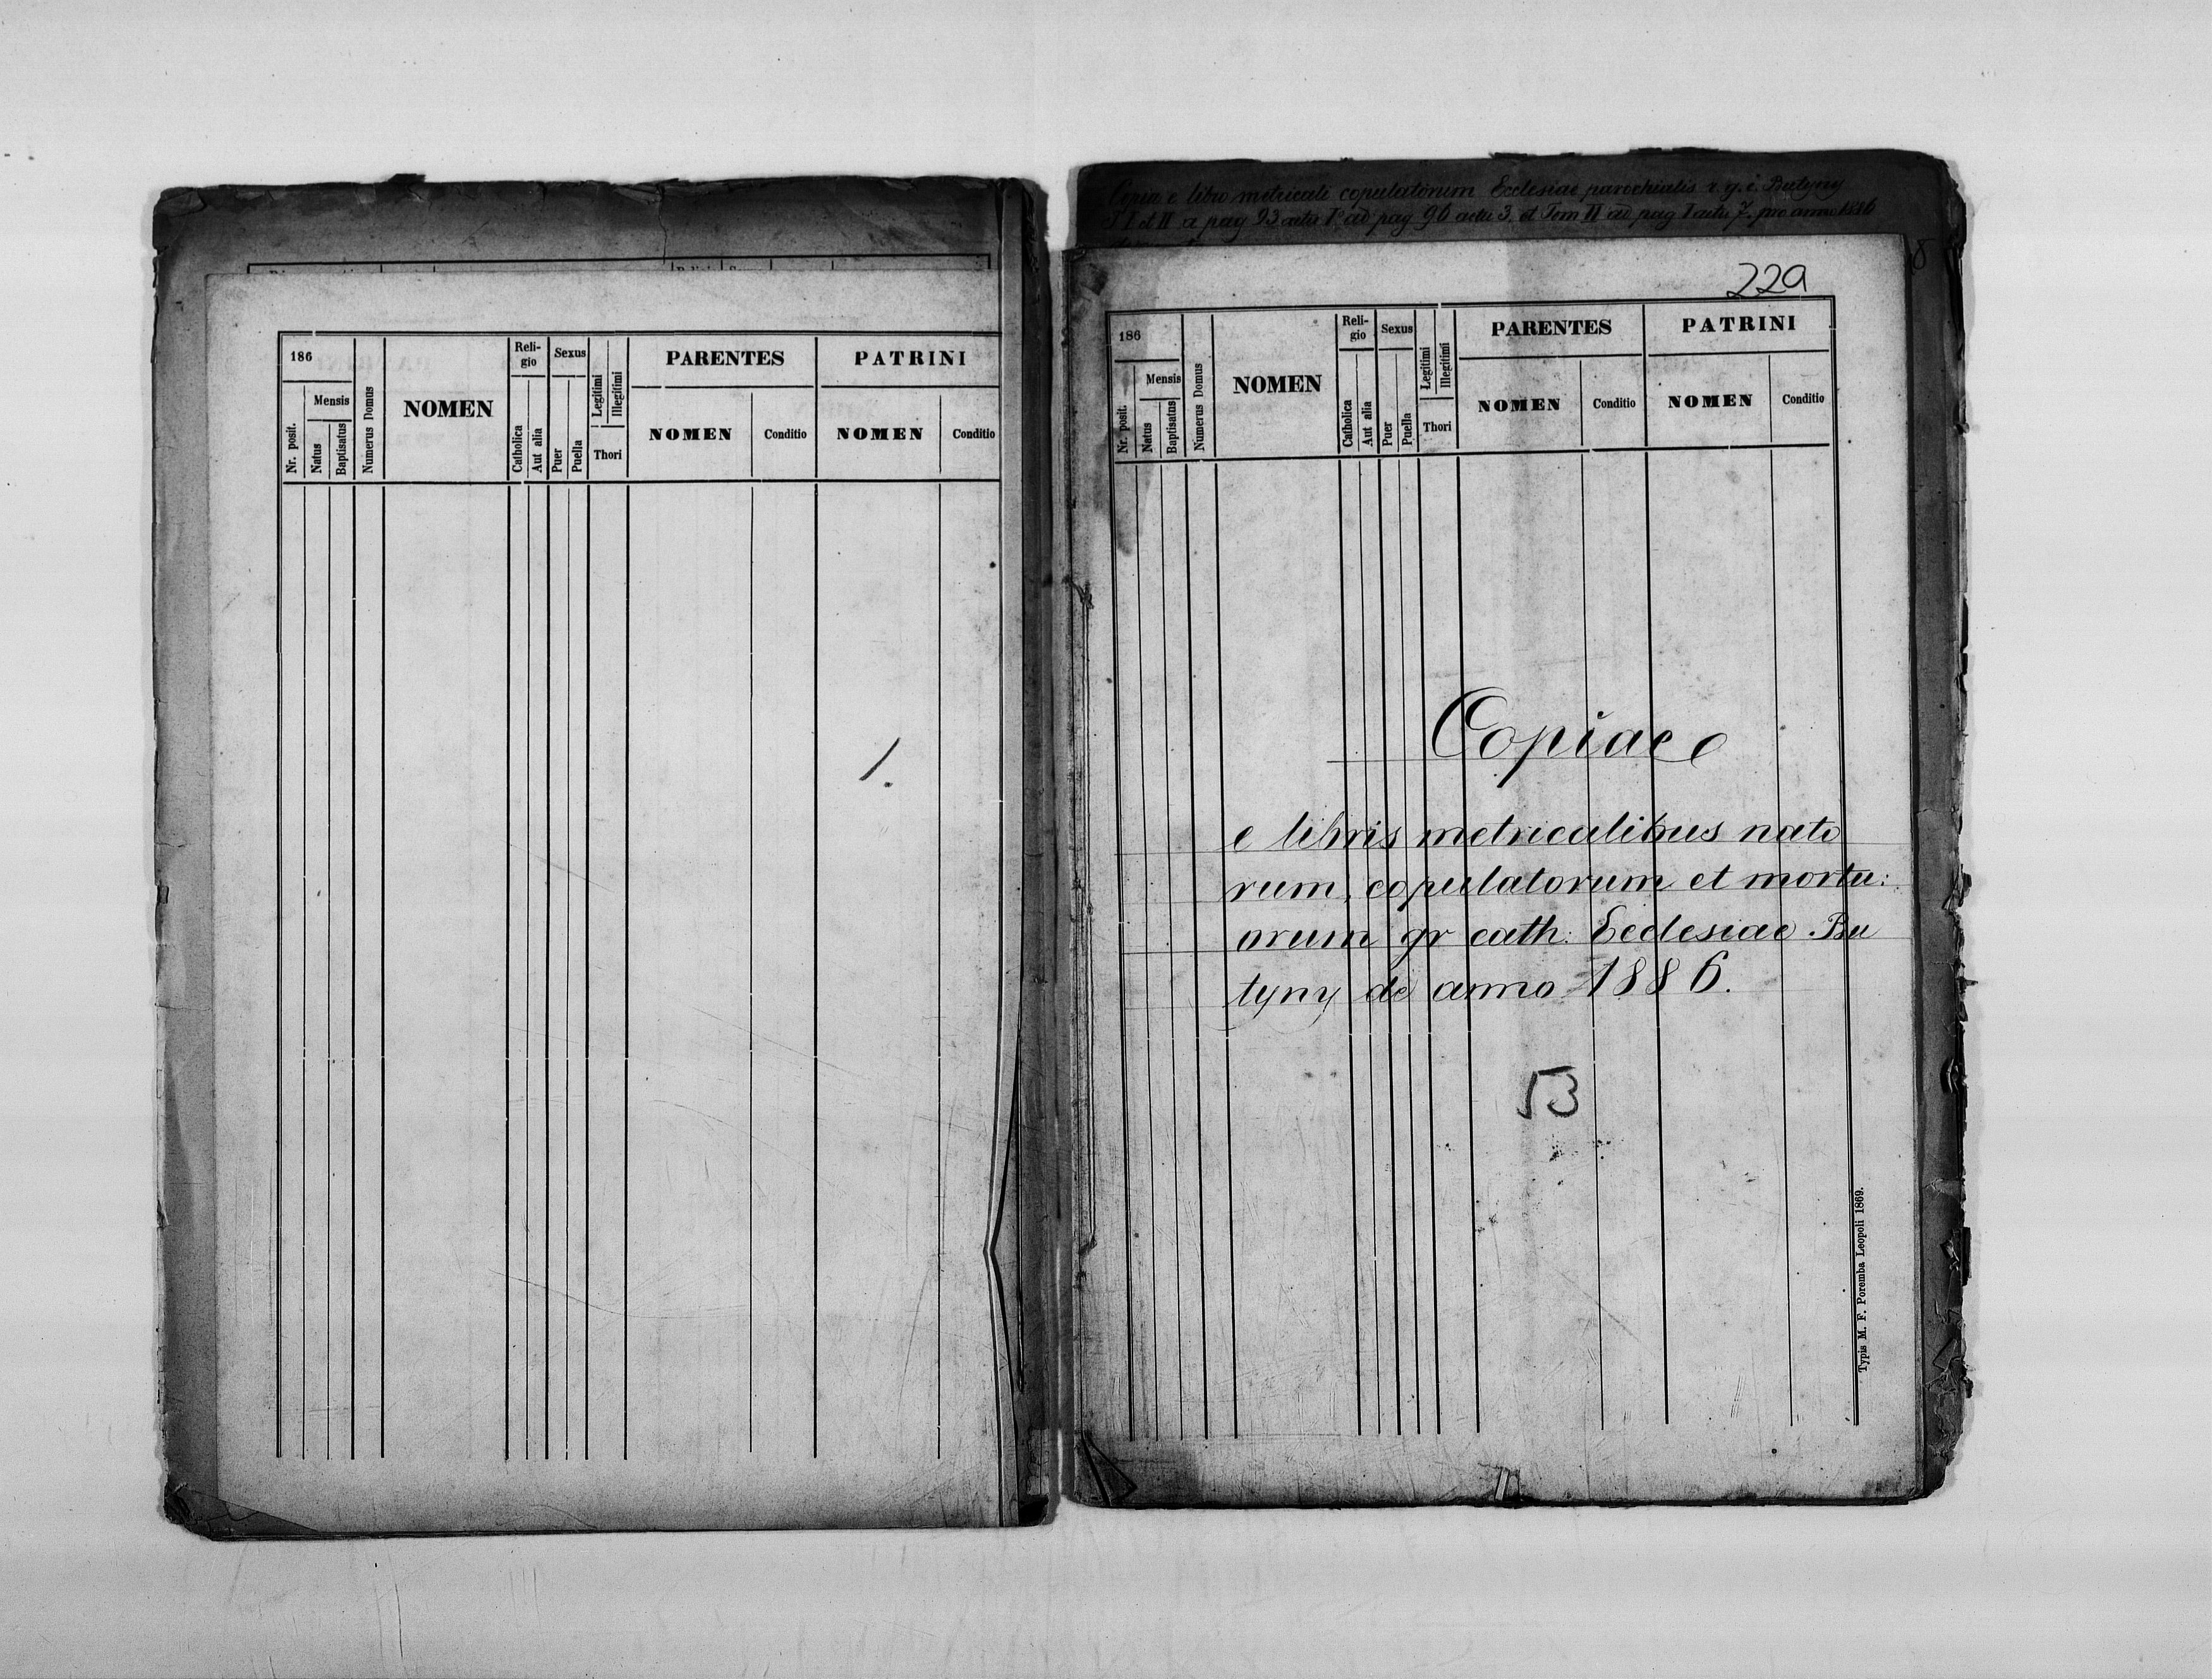 186
Mensis
Nr. posit.
Natus
Baptisatus
Numerus Domus
NOMEN
Reli-
gio
Catholica
Aut alia
Sexus
Puer
Puella
Legitimi
Illegitimi
Thori
PARENTES
NOMEN
Conditio
PATRINI
NOMEN
Conditio
1.
Copia e libro metricali copulatorum Ecclesiae parochialis r. g. c. Butyny
T I et II a pag 93 actu 1º ad pag 96 actu 3. et Tom II ad pag 1 actu 7. pro anno 1886
8
229
186
Mensis
Nr. posit.
Natus
Baptisatus
Numerus Domus
NOMEN
Reli-
gio
Catholica
Aut alia
Sexus
Puer
Puella
Legitimi
Illegitimi
Thori
PARENTES
NOMEN
Conditio
PATRINI
NOMEN
Conditio
Copiae
e libris metricalibus nato
rum, copulatorum et mortu:
orum gr cath: Ecclesiae Bu
tyny de anno 1886.
53
Typis M. F. Poremba Leopoli 1869.